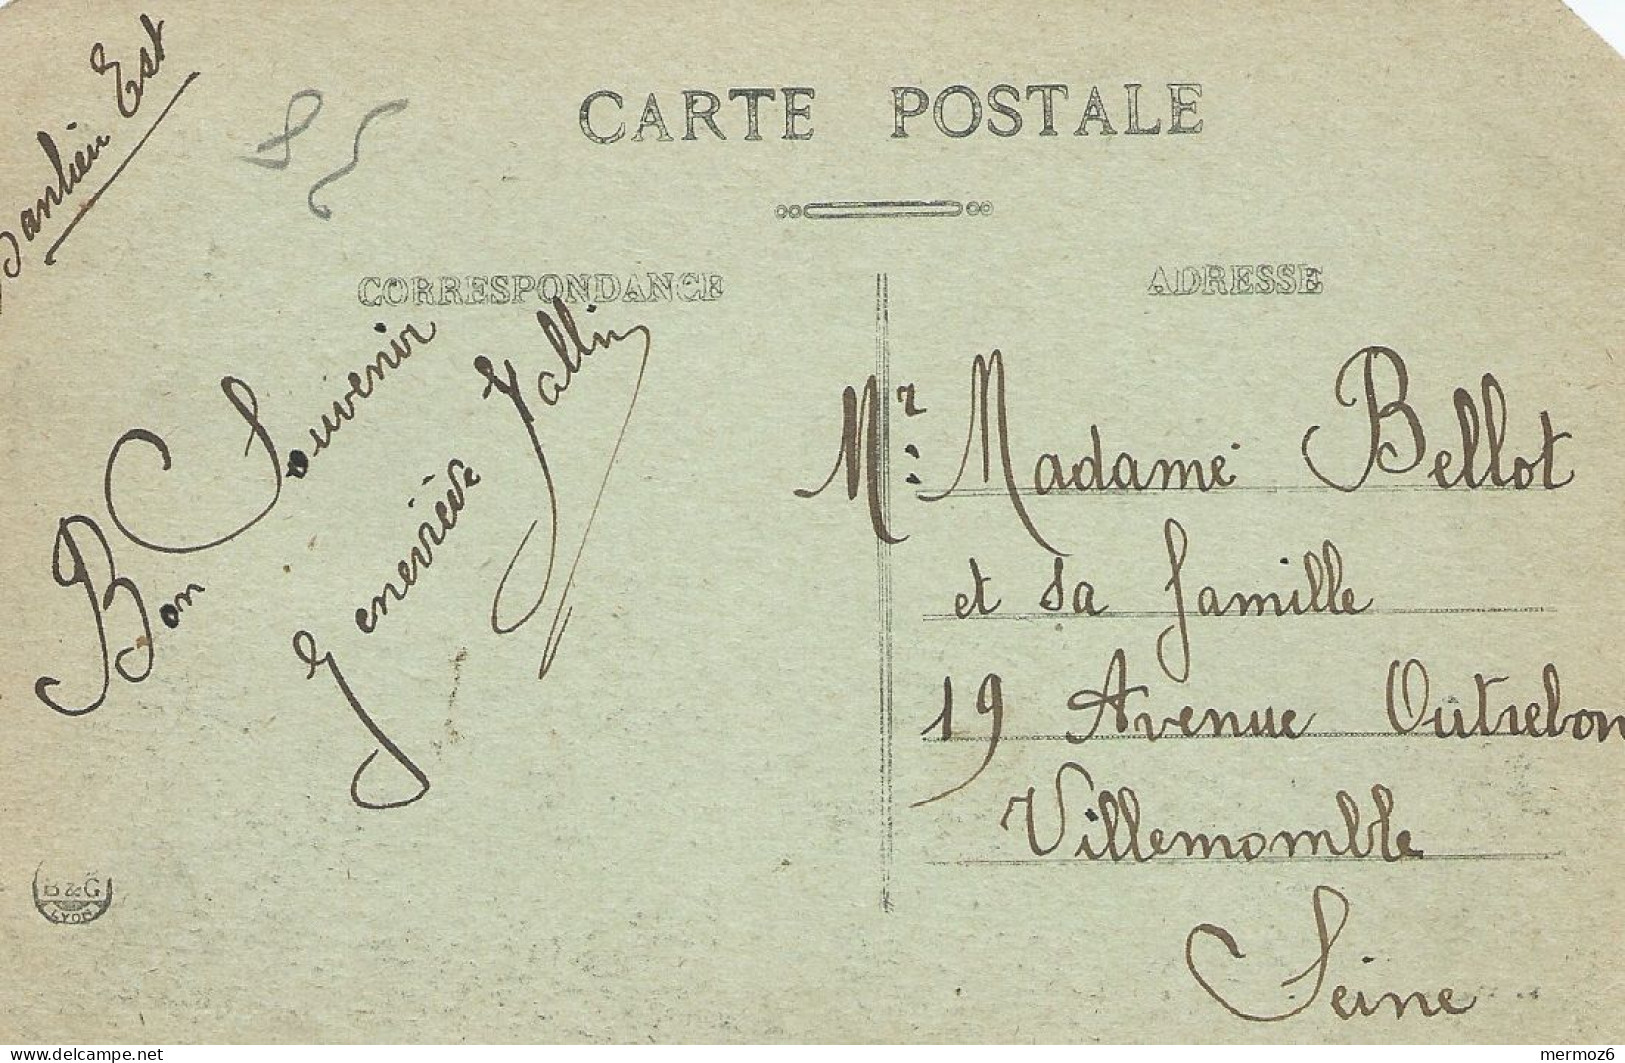 Banlieu Est
85
CARTE POSTALE
CORRESPONDANCE
ADRESSE
Bon Souvenir
Geneviève
Mr. Madame Bellot
et sa famille
19 Avenue Outrebon
Villemomble
Seine
B & G
LYON
www.delcampe.net
mermoz6